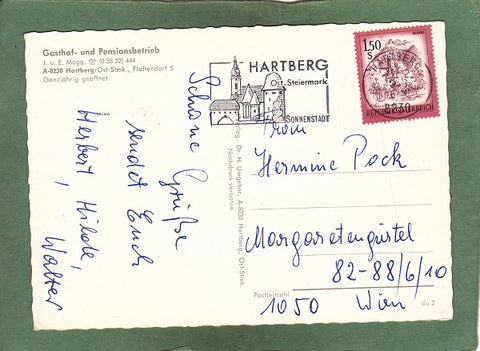 Gasthof- und Pensionsbetrieb
J. u. E. Mogg, ☎ (0 33 32) 444
A-8230 Hartberg/Ost-Stmk., Flattendorf 5
Ganzjährig geöffnet
Schöne Grüße
sendet Euch
Herbert, Hilde,
Walter
HARTBERG
Ost-Steiermark
SONNENSTADT
1,50
S
REPUBLIK ÖSTERREICH
8230
Verlag: Dr. H. Umgeher, A-8230 Hartberg, Ost-Stmk.
Nachdruck verboten
Frau
Hermine Pock
Margaretengürtel
82-88/6/10
Postleitzahl
1050 Wien
du 2